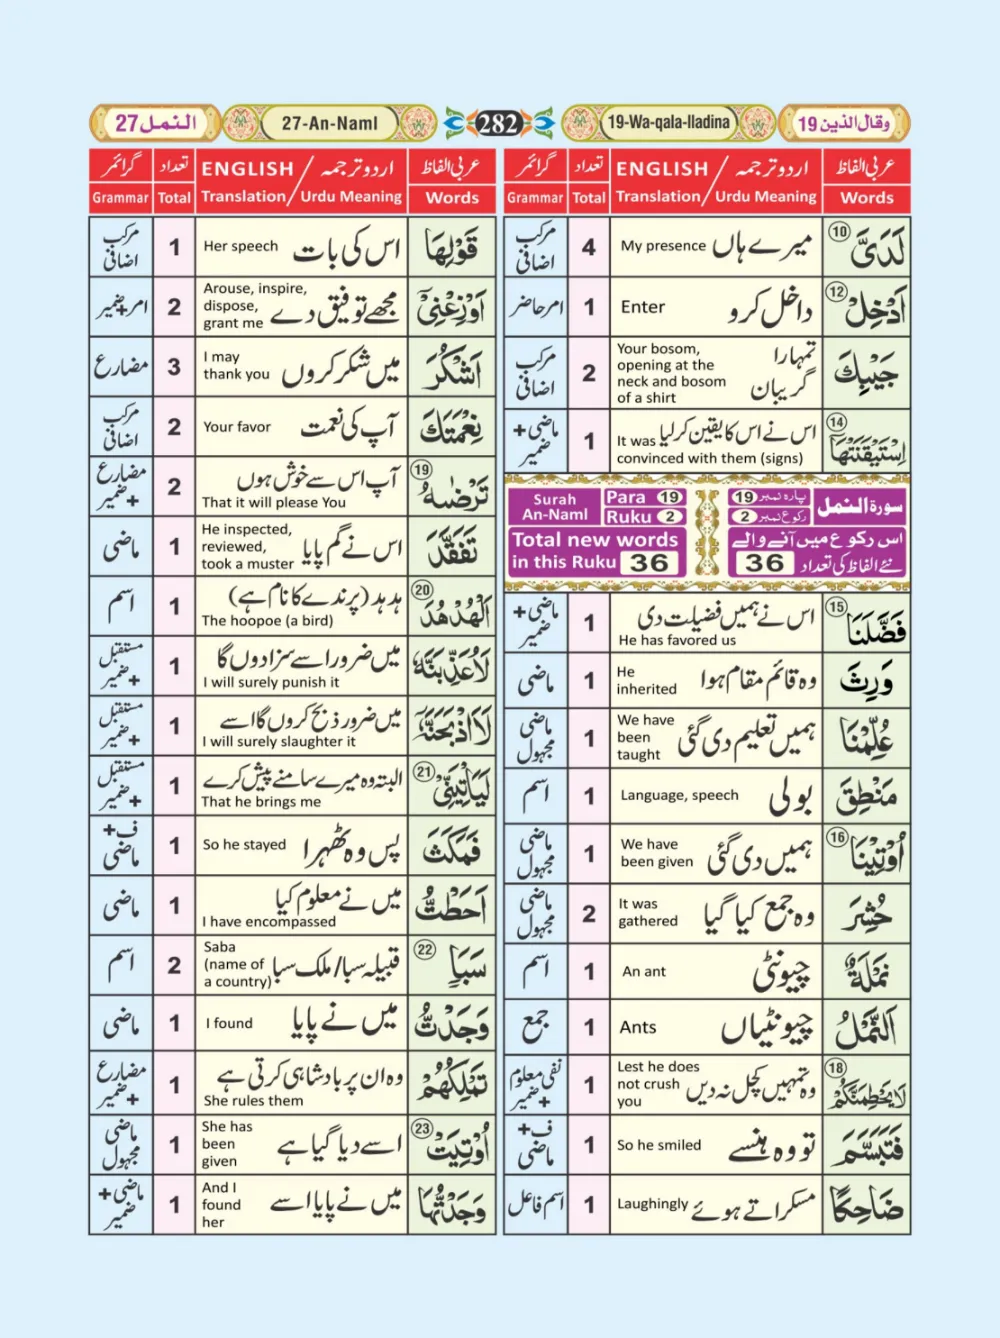 النمل 27
27-An-Naml
282
19-Wa-qala-lladina
وقال الذين 19
عربی الفاظ
اردو ترجمہ / ENGLISH
تعداد
گرائمر
Words
Translation / Urdu Meaning
Total
Grammar
لَدَیَّ ⑩
میرے ہاں
My presence
4
مرکب اضافی
اَدْخِلْ ⑫
داخل کرو
Enter
1
امر حاضر
جَیْبِكَ
تمہارا
گریبان
Your bosom,
opening at the
neck and bosom
of a shirt
2
مرکب اضافی
اِسْتَیْقَنَتْهَا ⑭
اس نے اس کا یقین کر لیا
It was
convinced with them (signs)
1
ماضی + ضمیر
Surah
An-Naml
Para 19
Ruku 2
پارہ نمبر 19
رکوع نمبر 2
سورۃ النمل
Total new words
in this Ruku 36
اس رکوع میں آنے والے
نئے الفاظ کی تعداد 36
فَضَّلَنَا ⑮
اس نے ہمیں فضیلت دی
He has favored us
1
ماضی + ضمیر
وَرِثَ
وہ قائم مقام ہوا
He
inherited
1
ماضی
عُلِّمْنَا
ہمیں تعلیم دی گئی
We have
been
taught
1
ماضی مجہول
مَنْطِقَ
بولی
Language, speech
1
اسم
اُوْتِیْنَا ⑯
ہمیں دی گئی
We have
been given
1
ماضی مجہول
حُشِرَ
وہ جمع کیا گیا
It was
gathered
2
ماضی مجہول
نَمْلَةٌ
چیونٹی
An ant
1
اسم
اَلنَّمْلُ
چیونٹیاں
Ants
1
جمع
لَایَحْطِمَنَّكُمْ ⑱
وہ تمہیں کچل نہ دیں
Lest he does
not crush
you
1
نفی معلوم + ضمیر
فَتَبَسَّمَ
تو وہ ہنسے
So he smiled
1
ف + ماضی
ضَاحِكًا
مسکراتے ہوئے
Laughingly
1
اسم فاعل
عربی الفاظ
اردو ترجمہ / ENGLISH
تعداد
گرائمر
Words
Translation / Urdu Meaning
Total
Grammar
قَوْلِهَا
اس کی بات
Her speech
1
مرکب اضافی
اَوْزِعْنِیْۤ
مجھے توفیق دے
Arouse, inspire,
dispose,
grant me
2
امر + ضمیر
اَشْكُرَ
میں شکر کروں
I may
thank you
3
مضارع
نِعْمَتَكَ
آپ کی نعمت
Your favor
2
مرکب اضافی
تَرْضٰىهُ ⑲
آپ اس سے خوش ہوں
That it will please You
2
مضارع + ضمیر
تَفَقَّدَ
اس نے گم پایا
He inspected,
reviewed,
took a muster
1
ماضی
اَلْهُدْهُدَ ⑳
ہدہد (پرندے کا نام ہے)
The hoopoe (a bird)
1
اسم
لَاُعَذِّبَنَّهٗ
میں ضرور اسے سزا دوں گا
I will surely punish it
1
مستقبل + ضمیر
لَاَاذْبَحَنَّهٗۤ
میں ضرور ذبح کروں گا اسے
I will surely slaughter it
1
مستقبل + ضمیر
لَیَاْتِیَنِّیْ ㉑
البتہ وہ میرے سامنے پیش کرے
That he brings me
1
مستقبل + ضمیر
فَمَكَثَ
پس وہ ٹھہرا
So he stayed
1
ف + ماضی
اَحَطْتُّ
میں نے معلوم کیا
I have encompassed
1
ماضی
سَبَاٍۭ ㉒
قبیلہ سبا / ملک سبا
Saba
(name of
a country)
2
اسم
وَجَدْتُّ
میں نے پایا
I found
1
ماضی
تَمْلِكُهُمْ
وہ ان پر بادشاہی کرتی ہے
She rules them
1
مضارع + ضمیر
اُوْتِیَتْ ㉓
اسے دیا گیا ہے
She has
been
given
1
ماضی مجہول
وَجَدْتُّهَا
میں نے پایا اسے
And I
found
her
1
ماضی + ضمیر